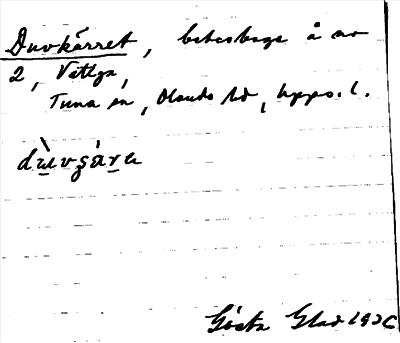 Duvkärret, beteshage å nr
2, Vettga,
Tuna sn, Olands hd, Upps. l.
Gösta Glad 1936